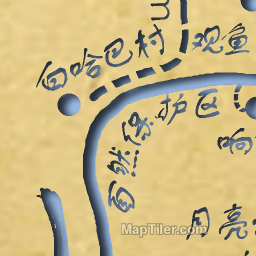 白哈巴村
观鱼
自然保护区
响
月亮
MapTiler.com